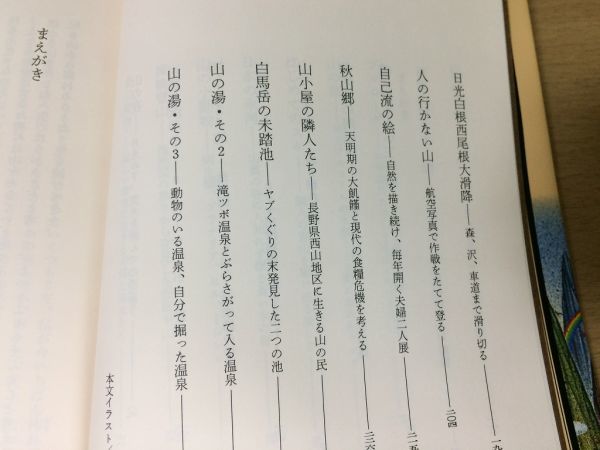 日光白根西尾根大滑降――森、沢、車道まで滑り切る――一九
人の行かない山――航空写真で作戦をたてて登る――二〇四
自己流の絵――自然を描き続け、毎年開く夫婦二人展――二一五
秋山郷――天明期の大飢饉と現代の食糧危機を考える――二三六
山小屋の隣人たち――長野県西山地区に生きる山の民――
白馬岳の未踏池――ヤブくぐりの末発見した二つの池――
山の湯・その2――滝ツボ温泉とぶらさがって入る温泉――
山の湯・その3――動物のいる温泉、自分で掘った温泉――
本文イラスト
まえがき